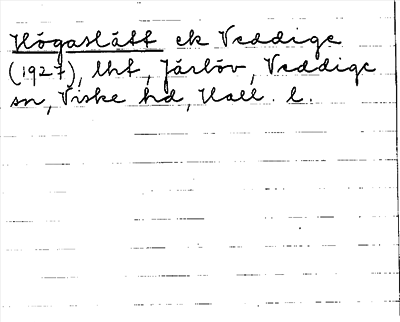 Högaslätt ek Veddige
(1927), lht, Järlöv, Veddige
sn, Viske hd, Hall. l.